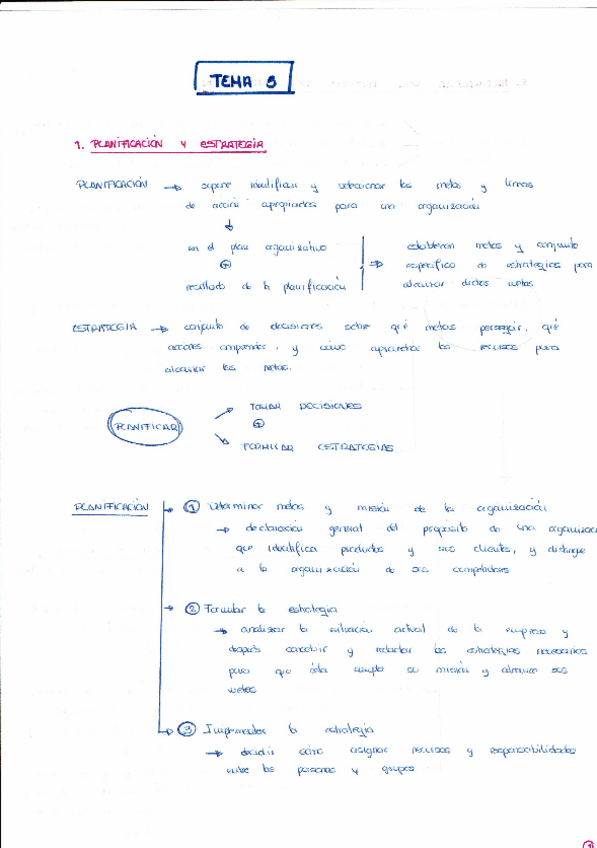 TEMA 5
1. PLANIFICACIÓN Y ESTRATEGIA
PLANIFICACIÓN → supone identificar y seleccionar las metas y líneas
de acción apropiadas para una organización
↓
en el plan organizativo
⊕
resultado de la planificación
⇒ establecen metas y conjunto
específico de estrategias para
alcanzar dichas metas
ESTRATEGIA → conjunto de decisiones sobre qué metas perseguir, qué
acciones emprender, y cómo aprovechar los recursos para
alcanzar las metas.
PLANIFICAR
TOMAR DECISIONES
⊕
FORMULAR ESTRATEGIAS
PLANIFICACIÓN → ① Determinar metas y misión de la organización
→ declaración general del propósito de una organizac
que identifica productos y sus clientes, y distingue
a la organización de sus competidores
→ ② Formular la estrategia
→ analizar la situación actual de la empresa y
después concebir y redactar las estrategias necesarias
para que ésta cumpla su misión y alcance sus
metas
→ ③ Implementar la estrategia
→ decidir cómo asignar recursos y responsabilidades
entre las personas y grupos
1